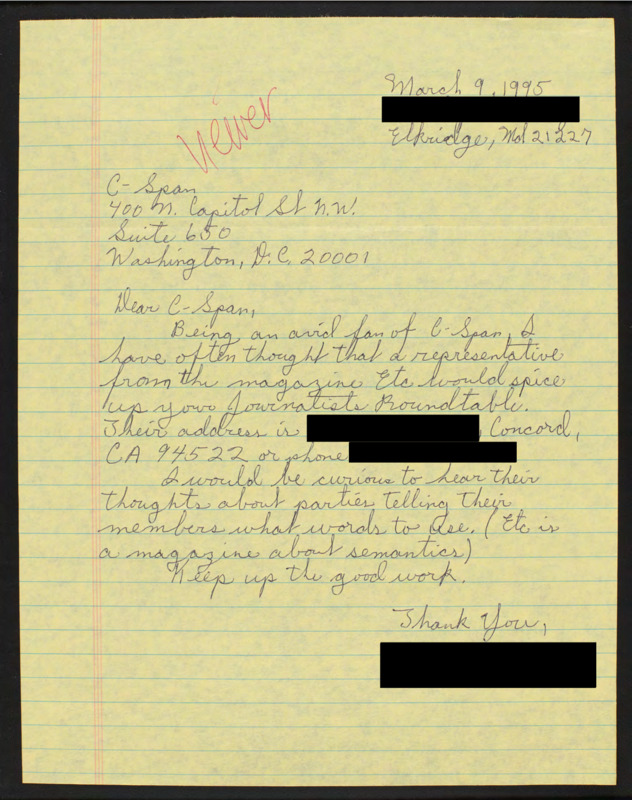 March 9, 1995
Elkridge, Md 21227
viewer
C-Span
400 N. Capitol St N.W.
Suite 650
Washington, D.C. 20001
Dear C-Span,
Being an avid fan of C-Span, I
have often thought that a representative
from the magazine Etc would spice
up your Journalists Roundtable.
Their address is , Concord,
CA 94522 or phone
I would be curious to hear their
thoughts about parties telling their
members what words to use. (Etc is
a magazine about semantics)
Keep up the good work.
Thank You,